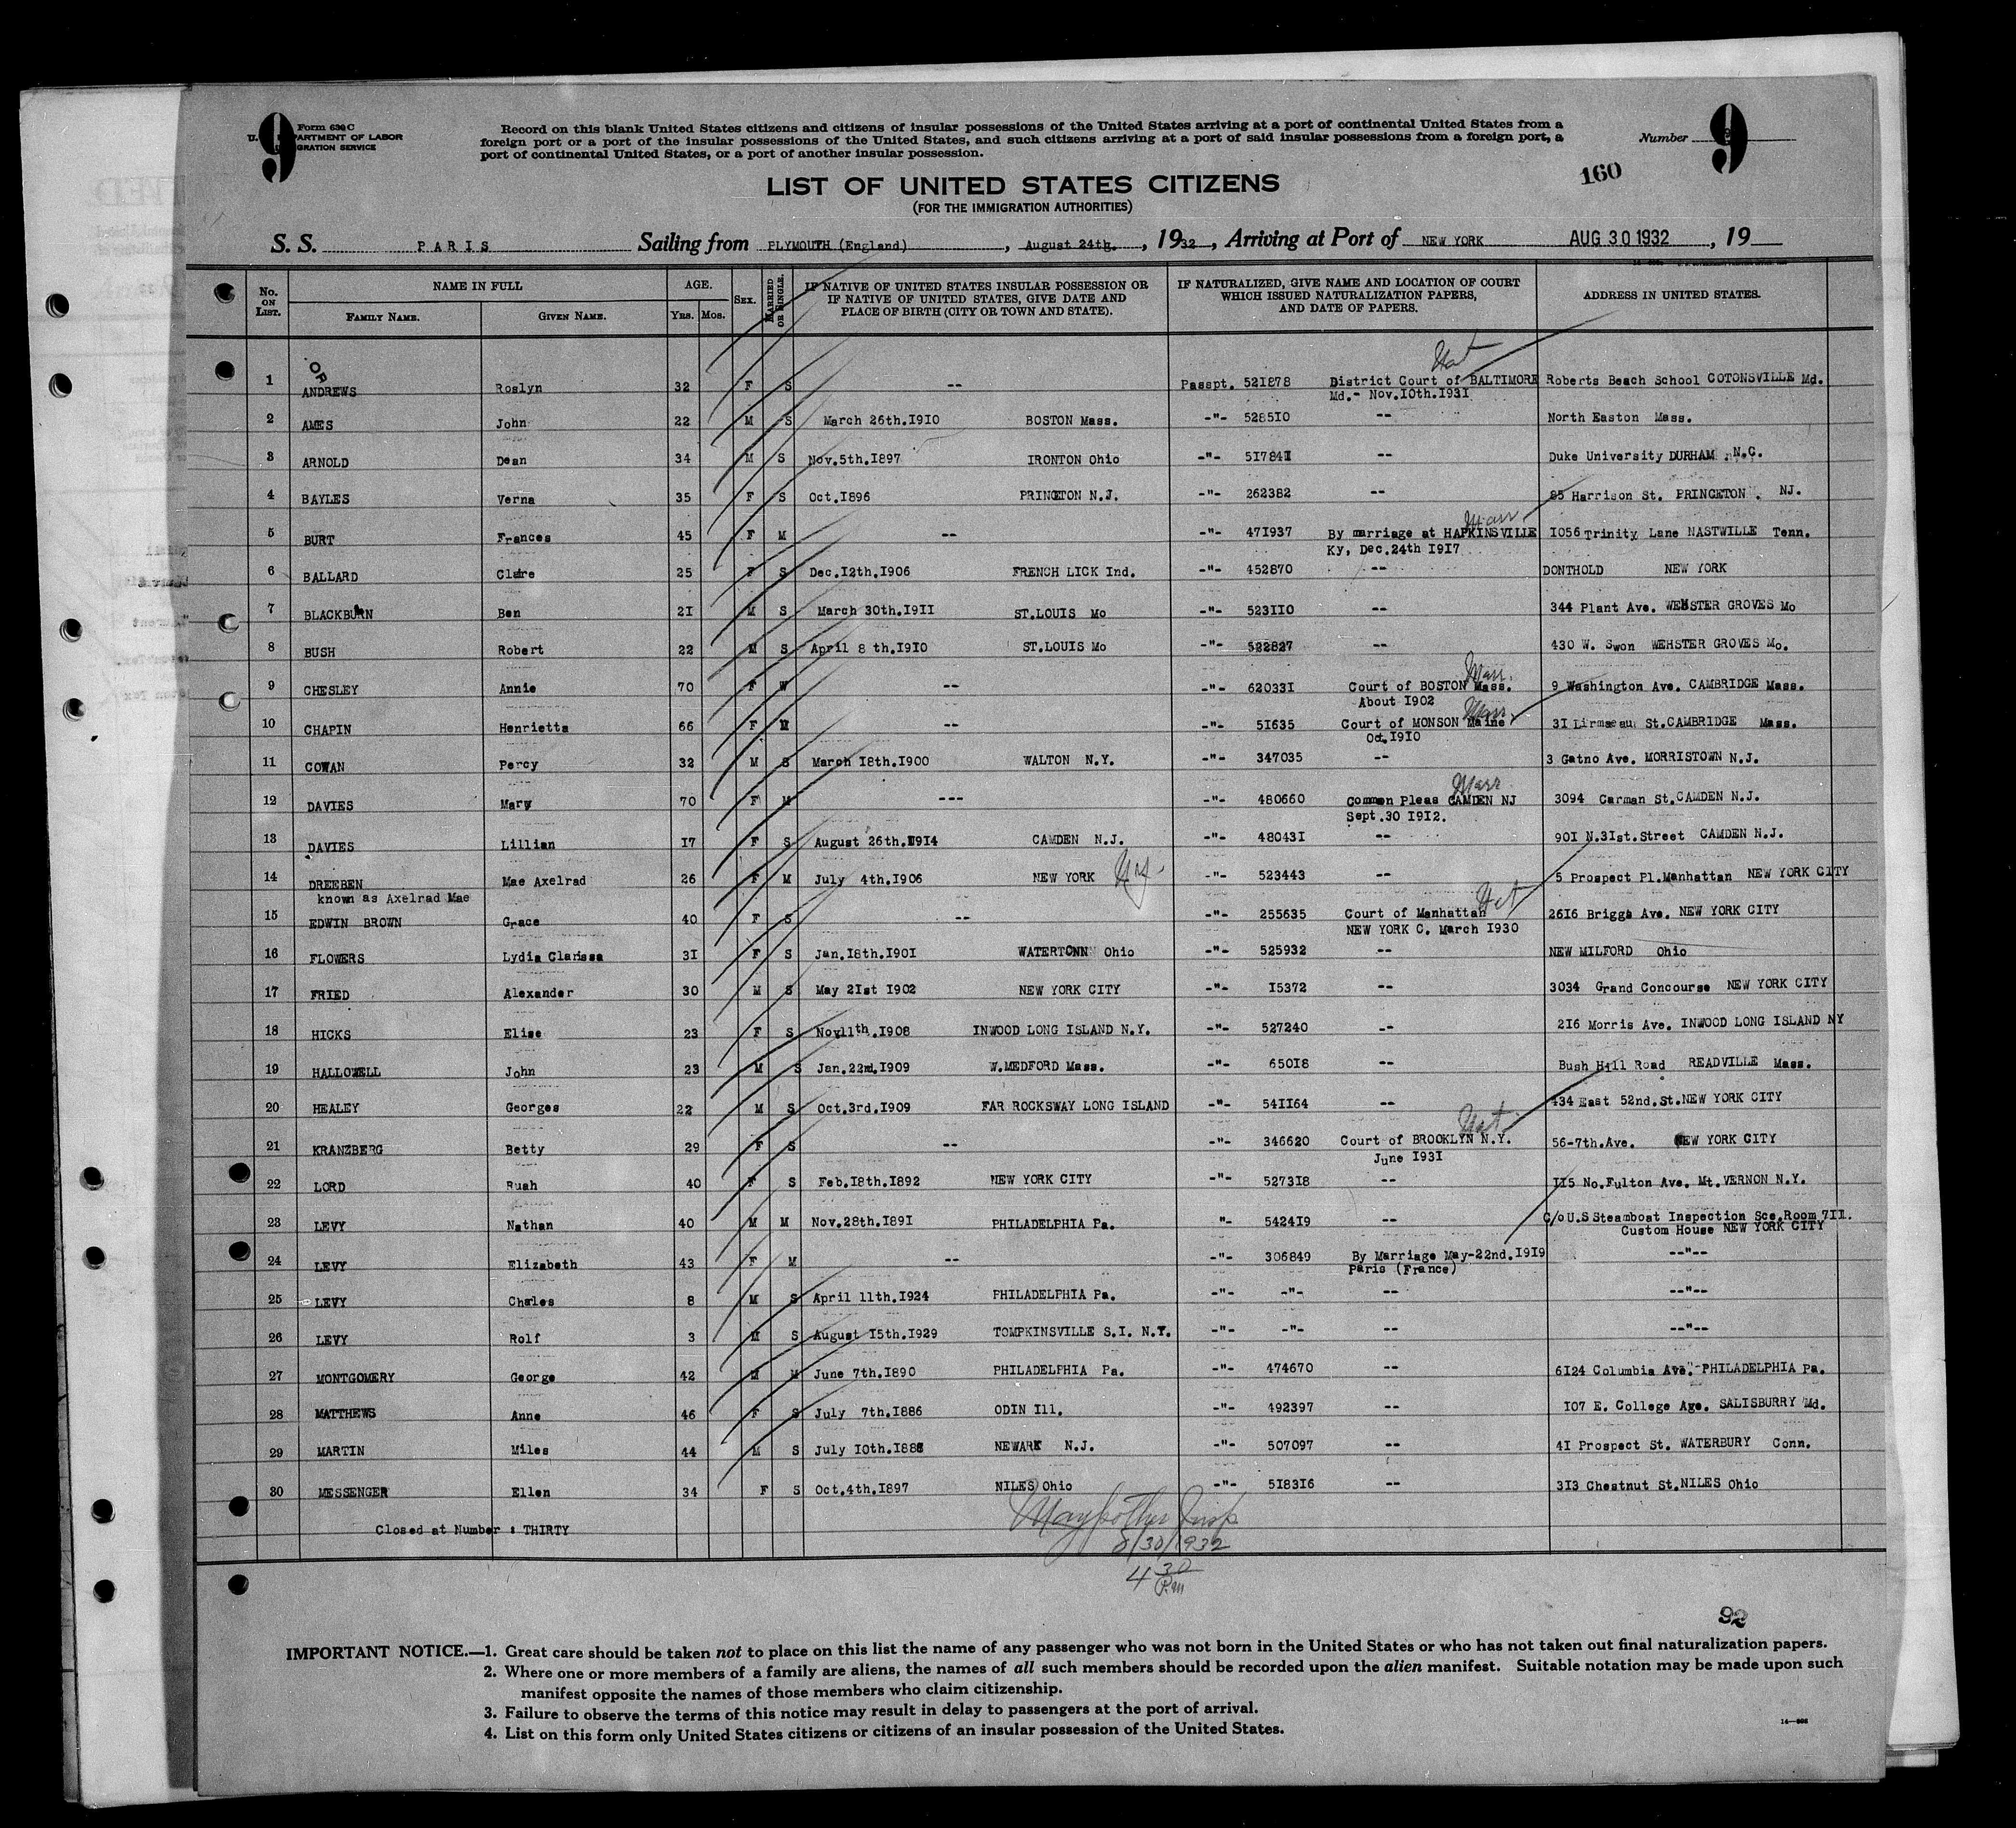 9 Form 630 C 9
U. S. DEPARTMENT OF LABOR
IMMIGRATION SERVICE
Record on this blank United States citizens and citizens of insular possessions of the United States arriving at a port of continental United States from a
foreign port or a port of the insular possessions of the United States, and such citizens arriving at a port of said insular possessions from a foreign port, a
port of continental United States, or a port of another insular possession.
Number
160
LIST OF UNITED STATES CITIZENS
(FOR THE IMMIGRATION AUTHORITIES)
S. S. PARIS Sailing from PLYMOUTH (England), August 24th., 1932, Arriving at Port of NEW YORK AUG 30 1932, 19
No. ON LIST. NAME IN FULL FAMILY NAME. GIVEN NAME. AGE. YRS. MOS. SEX. MARRIED OR SINGLE. IF NATIVE OF UNITED STATES INSULAR POSSESSION OR IF NATIVE OF UNITED STATES, GIVE DATE AND PLACE OF BIRTH (CITY OR TOWN AND STATE). IF NATURALIZED, GIVE NAME AND LOCATION OF COURT WHICH ISSUED NATURALIZATION PAPERS, AND DATE OF PAPERS. ADDRESS IN UNITED STATES.
OR Nat
1 ANDREWS Roslyn 32 F S -- Passpt. 521878 District Court of BALTIMORE Roberts Beach School COTONSVILLE Md.
Md.- Nov.10th.1931
2 AMES John 22 M S March 26th.1910 BOSTON Mass. -"- 528510 -- North Easton Mass.
3 ARNOLD Dean 34 M S Nov.5th.1897 IRONTON Ohio -"- 517841 -- Duke University DURHAM .N.C.
4 BAYLES Verna 35 F S Oct.1896 PRINCETON N.J. -"- 262382 -- 85 Harrison St. PRINCETON . NJ.
Marr
5 BURT Frances 45 F M -- -"- 471937 By marriage at HAPKINSVILLE 1056 Trinity Lane NASTWILLE Tenn.
Ky, Dec.24th 1917
6 BALLARD Claire 25 F S Dec.12th.1906 FRENCH LICK Ind. -"- 452870 -- DONTHOLD NEW YORK
7 BLACKBURN Ben 21 M S March 30th.1911 ST.LOUIS Mo -"- 523110 -- 344 Plant Ave. WEHSTER GROVES Mo
8 BUSH Robert 22 M S April 8 th.1910 ST.LOUIS Mo -"- 522827 -- 430 W. Swon WEHSTER GROVES Mo.
Marr.
9 CHESLEY Annie 70 F W -- -"- 620331 Court of BOSTON Mass. 9 Washington Ave. CAMBRIDGE Mass.
About 1902
Marr.
10 CHAPIN Henrietta 66 F M -- -"- 51635 Court of MONSON Maine 31 St.CAMBRIDGE Mass.
Oct.1910
11 COWAN Percy 32 M S March 18th.1900 WALTON N.Y. -"- 347035 -- 3 Gatno Ave. MORRISTOWN N.J.
Marr
12 DAVIES Mary 70 F M --- -"- 480660 Common Pleas CAMDEN NJ 3094 Carman St.CAMDEN N.J.
Sept.30 1912.
13 DAVIES Lillian 17 F S August 26th.1914 CAMDEN N.J. -"- 480431 -- 901 N.31st.Street CAMDEN N.J.
14 DREEBEN Mae Axelrad 26 F M July 4th.1906 NEW YORK -"- 523443 -- 5 Prospect Pl.Manhattan NEW YORK CITY
known as Axelrad Mae
15 EDWIN BROWN Grace 40 F S -- -"- 255635 Court of Manhattan 2616 Briggs Ave. NEW YORK CITY
NEW YORK C. March 1930
16 FLOWERS Lydia Clarissa 31 F S Jan.18th.1901 WATERTONN Ohio -"- 525932 -- NEW MILFORD Ohio
17 FRIED Alexander 30 M S May 21st 1902 NEW YORK CITY -"- 15372 -- 3034 Grand Concourse NEW YORK CITY
18 HICKS Elise 23 F S Nov11th.1908 INWOOD LONG ISLAND N.Y. -"- 527240 -- 216 Morris Ave. INWOOD LONG ISLAND NY
19 HALLOWELL John 23 M S Jan.22nd.1909 W.MEDFORD Mass. -"- 65018 -- Bush Hill Road READVILLE Mass.
20 HEALEY Georges 22 M S Oct.3rd.1909 FAR ROCKSWAY LONG ISLAND -"- 541164 -- 434 East 52nd.St.NEW YORK CITY
Nat.
21 KRANZBERG Betty 29 F S -- -"- 346620 Court of BROOKLYN N.Y. 56-7th.Ave. NEW YORK CITY
June 1931
22 LORD Ruah 40 F S Feb.18th.1892 NEW YORK CITY -"- 527318 -- 115 No.Fulton Ave. Mt.VERNON N.Y.
23 LEVY Nathan 40 M M Nov.28th.1891 PHILADELPHIA Pa. "- 542419 -- C/o U.S Steamboat Inspection Sce,Room 711.
Custom House NEW YORK CITY
24 LEVY Elizabeth 43 F M -- -"- 306849 By Marriage May-22nd.1919 --"--
Paris (France)
25 LEVY Chales 8 M S April 11th.1924 PHILADELPHIA Pa. -"- -"- -- --"--
26 LEVY Rolf 3 M S August 15th.1929 TOMPKINSVILLE S.I. N.Y. -"- -"- -- --"--
27 MONTGOMERY George 42 M M June 7th.1890 PHILADELPHIA Pa. -"- 474670 -- 6124 Columbia Ave. PHILADELPHIA Pa.
28 MATTHEWS Anne 46 F S July 7th.1886 ODIN Ill. -"- 492397 -- 107 E. College Age. SALISBURRY Md.
29 MARTIN Miles 44 M S July 10th.1888 NEWARK N.J. -"- 507097 -- 41 Prospect St. WATERBURY Conn.
30 MESSENGER Ellen 34 F S Oct.4th.1897 NILES Ohio -"- 518316 -- 313 Chestnut St.NILES Ohio
Closed at Number : THIRTY
Insp
8/30/1932
4 30 P.M
92
IMPORTANT NOTICE.—1. Great care should be taken not to place on this list the name of any passenger who was not born in the United States or who has not taken out final naturalization papers.
2. Where one or more members of a family are aliens, the names of all such members should be recorded upon the alien manifest. Suitable notation may be made upon such
manifest opposite the names of those members who claim citizenship.
3. Failure to observe the terms of this notice may result in delay to passengers at the port of arrival.
4. List on this form only United States citizens or citizens of an insular possession of the United States.